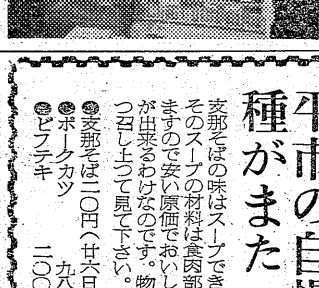 平市の自
種がまた
支那そばの味はスープでき
そのスープの材料は食肉部
ますので安い原価でおいし
が出来るわけなのです。物
つ召し上つて見て下さい。
◉支那そば二〇円(廿六日
◉ポークカツ 九八
◉ビフテキ 二〇〇